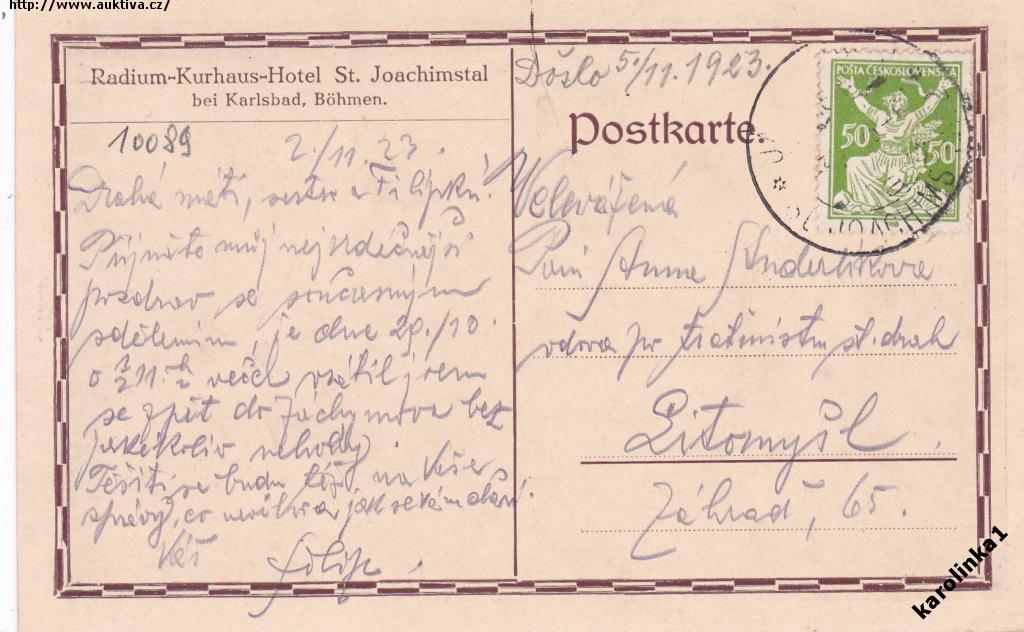 http://www.auktiva.cz/
Radium-Kurhaus-Hotel St. Joachimstal
bei Karlsbad, Böhmen.
10089
2./11. 23.
Drahá máti, sestro a Filípku!
Přijměte můj nejvděčnější
pozdrav se současným
sdělením, že dne 29./10.
o ½11. h večer vrátil jsem
se zpět do Jáchymova bez
jakékoliv nehody.
Těšiti se budu též na Vaše
zprávy, co a jak se vám daří.
Váš
Filip.
Došlo 5./11. 1923.
Postkarte.
POŠTA ČESKOSLOVENSKÁ
50 50
ST. JOACHIMS
Velevážená
Paní Anna Anderlíková
vdova po st. drah
Litomyšl.
Záhrad, 65.
karolinka1